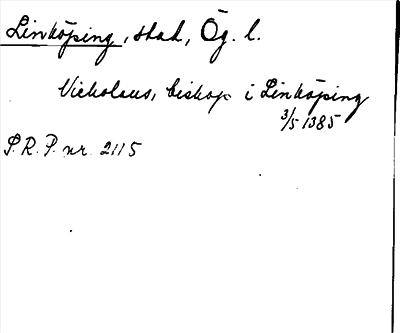 Linköping, stad, Ög. l.
Nicholaus, biskop i Linköping
3/5 1385
S.R.P. nr. 2115